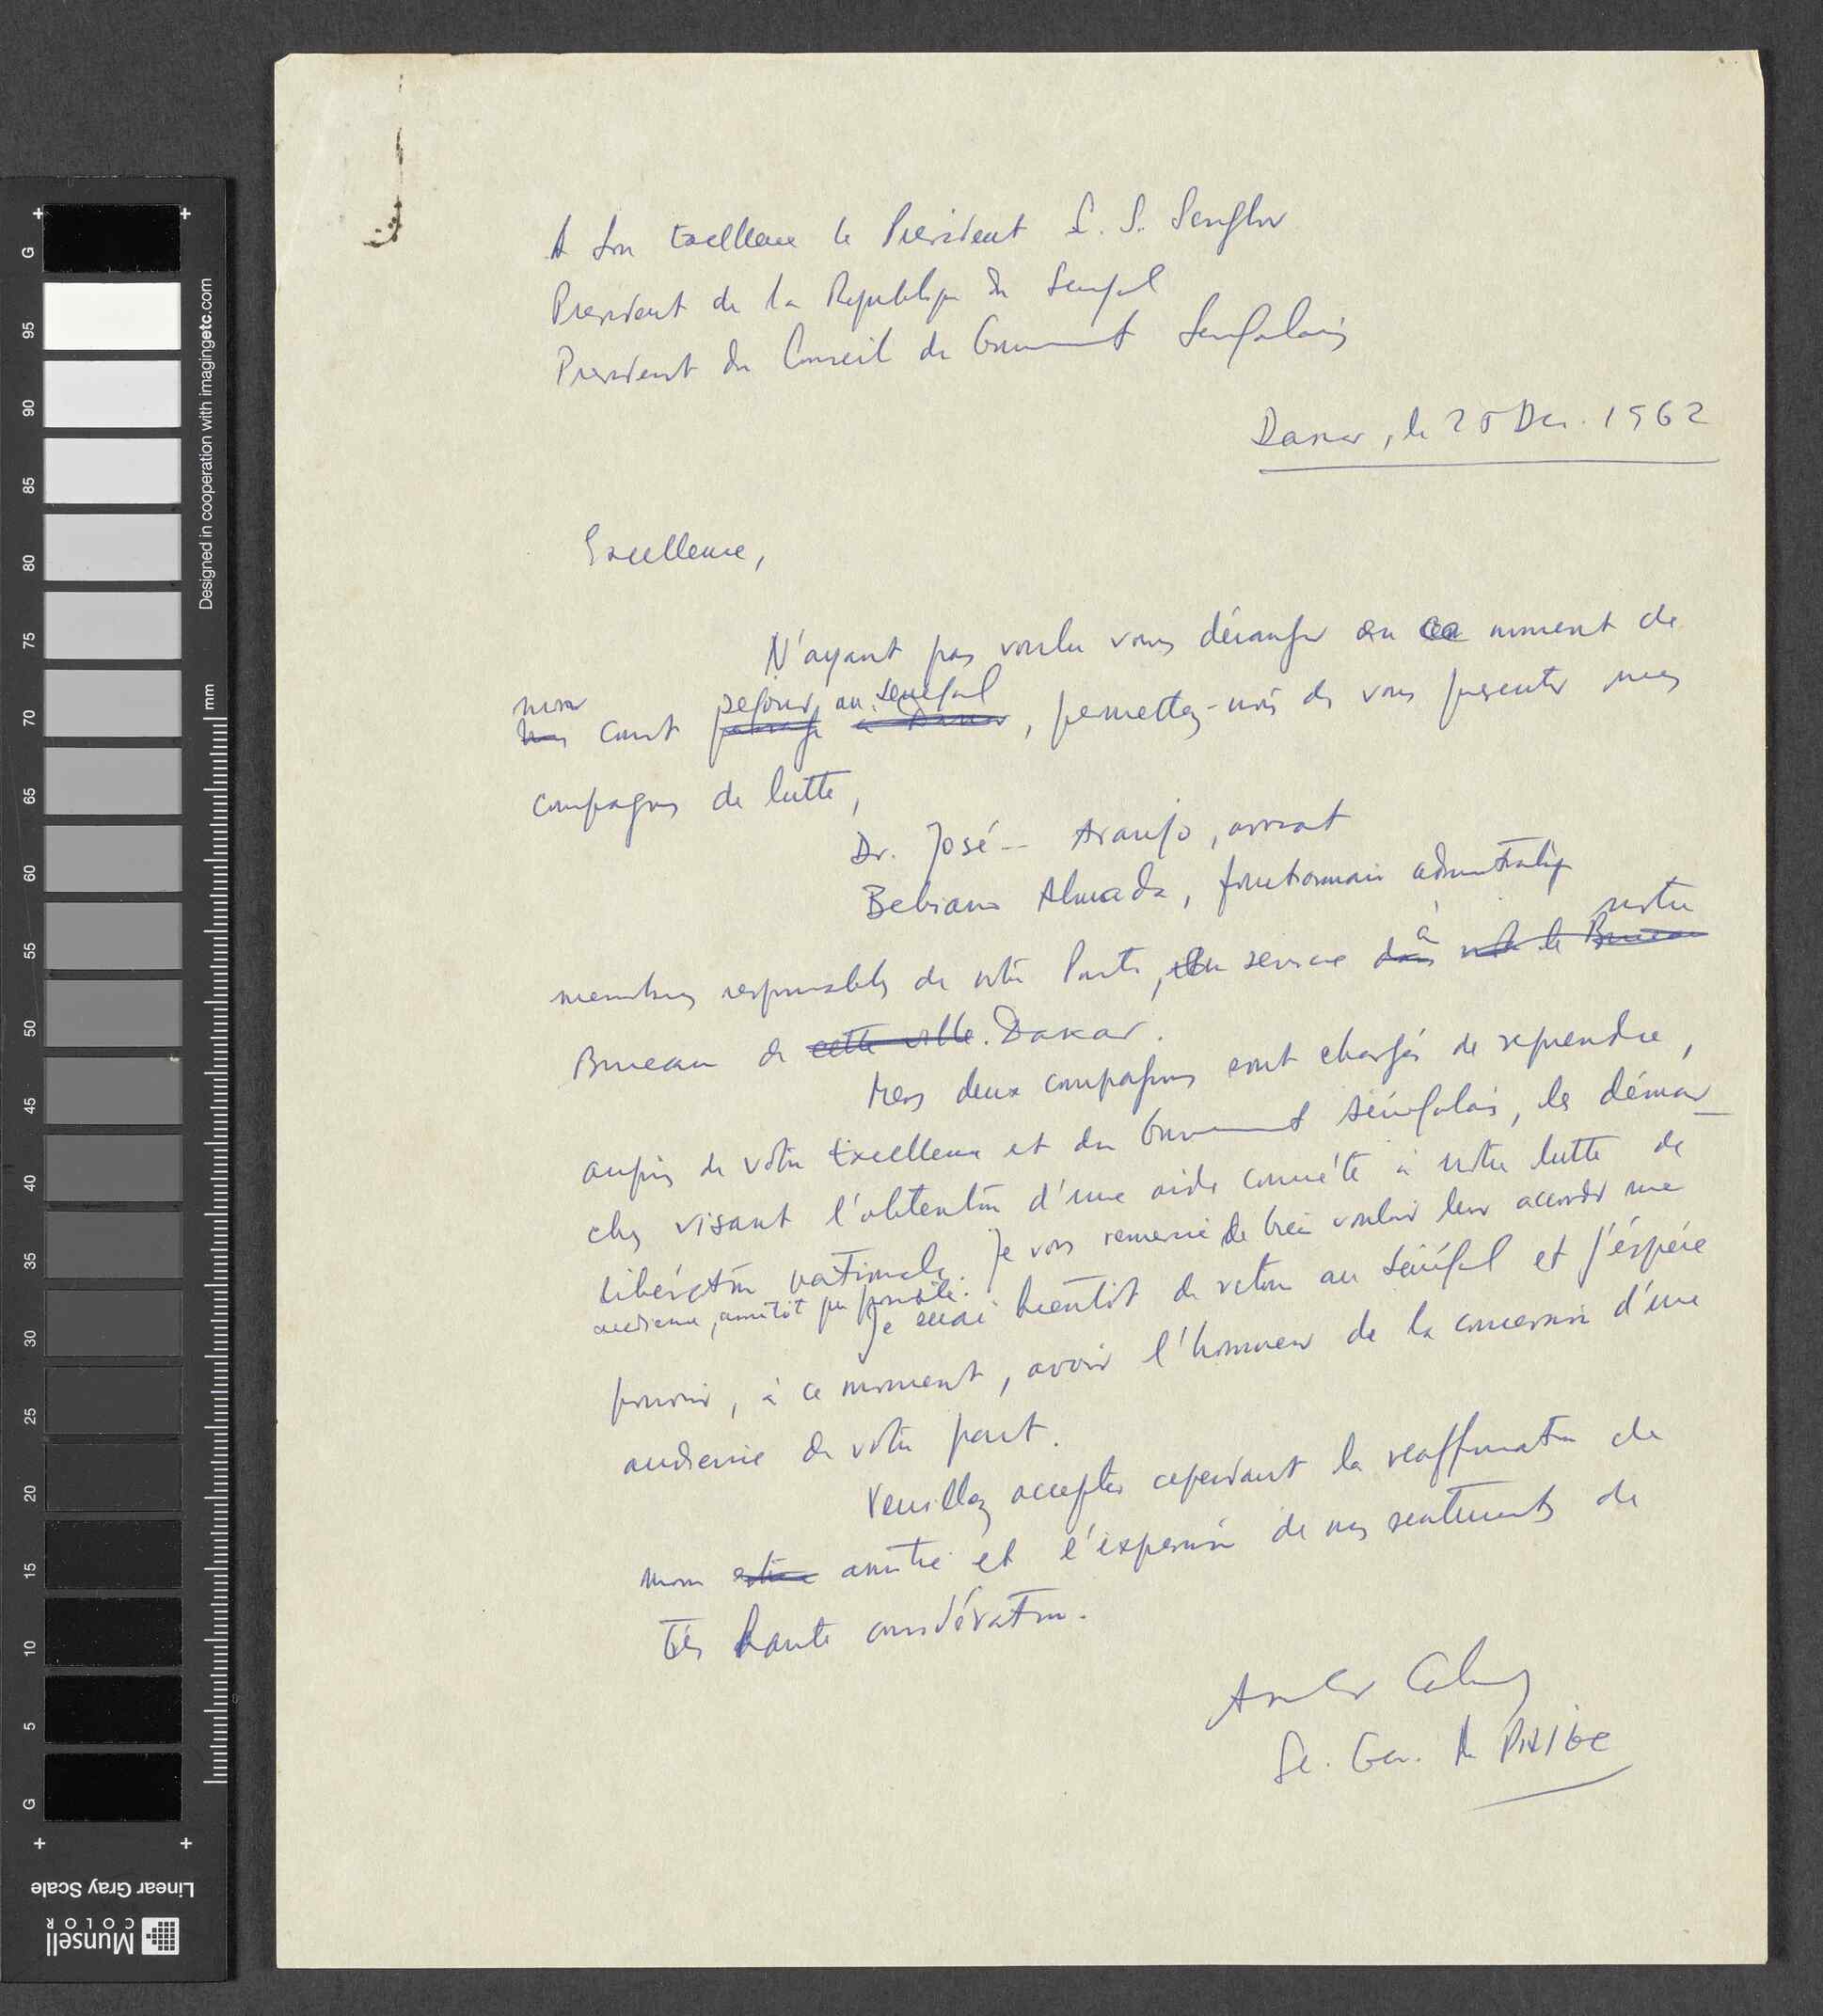 A Son Excellence le Président L. S. Senghor
President de la Republique du Senegal
President du Conseil de Gouvernement Senegalais
Dakar, le 28 Dec. 1962
Excellence,
N'ayant pas voulu vous déranger au ce moment de
mon séjour au Sénégal
court passage à Dakar, permettez-moi de vous presenter mes
compagnons de lutte,
Dr. José Araujo, avocat
Bebiano Almada, fonctionnaire administratif
à notre
membres responsables de notre Parti, en service dans le Bureau
Bureau de cette ville. Dakar.
Mes deux compagnons sont chargés de reprendre,
auprès de votre Excellence et du Gouvernement Sénégalais, les démar-
ches visant l'obtention d'une aide concrète à notre lutte de
libération nationale. Je vous remercie de bien vouloir leur accorder une
audience, aussitôt que possible.
Je serai bientôt de retour au Sénégal et j'éspére
pouvoir, à ce moment, avoir l'honneur de la concession d'une
audience de votre part.
Veuillez accepter cependant la reaffirmation de
mon amitié et l'expression de mes sentiments de
très haute considération.
Amilcar Cabral
Se. Gen. du PAIGC
G
95
90
85
80
75
70
65
60
55
50
45
40
35
30
25
20
15
10
5
G
mm
Designed in cooperation with imagingetc.com
Linear Gray Scale
Munsell
COLOR